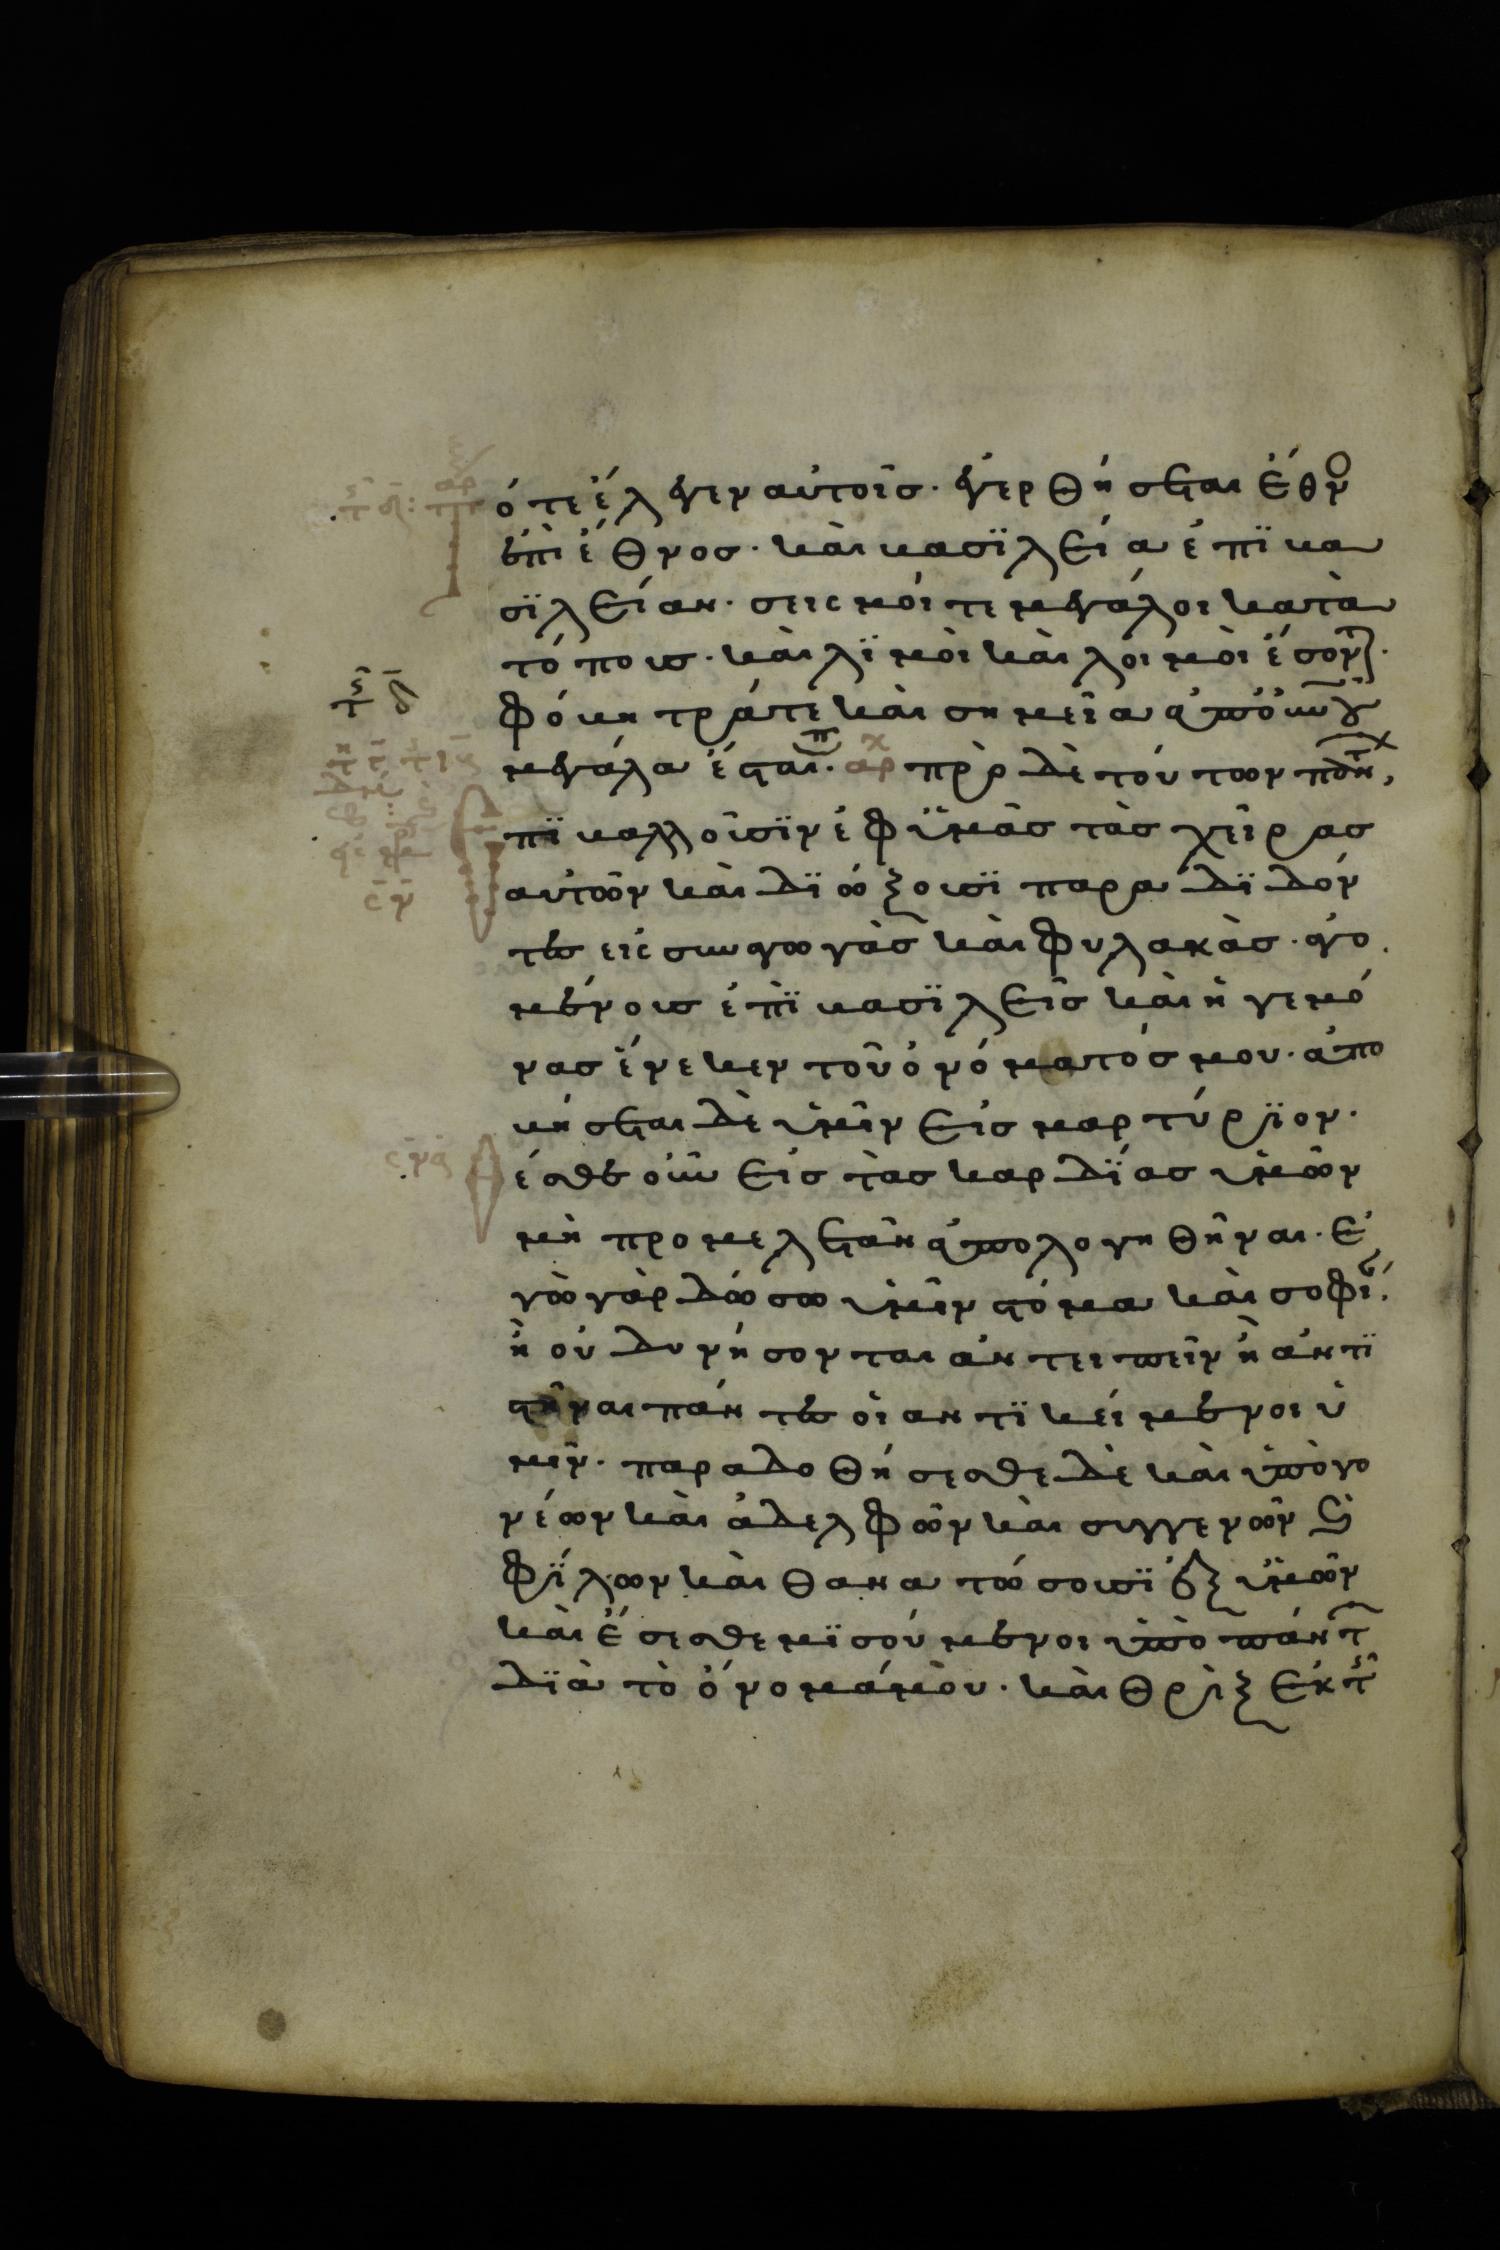 ὅτε ἔλεγεν αὐτοῖσ· ἐγερθήσεται ἔθνο
ἐπὶ ἔθνοσ· καὶ βασϊλεία ἐπϊ βα
σϊλείαν· σεισμοί τε μεγάλοι κατὰ
τόπουσ· καὶ λϊμοὶ καὶ λοιμοὶ ἔσον
φόβητρά τε καὶ σημεῖα ἀπὸ οὐνοῦ
μεγάλα ἔσται· αρχ πρὸ δὲ τούτων πάντ
πϊβαλλοῦσϊν ἐφ ὑμᾶσ τὰσ χεῖρασ
αὐτῶν καὶ δϊώξουσϊ παραδϊδόν
τεσ εἰσ συναγωγὰσ καὶ φυλακὰσ· ἀγο
μένουσ ἐπὶ βασϊλεῖσ καὶ ἡγεμό
νασ ἕνεκεν τοῦ ὀνόματόσ μου· ἀπο
βήσεται δὲ ὑμῖν εἰσ μαρτύρϊον·
θέσθε οὖν εἰσ τὰσ καρδΐασ ὑμῶν
μὴ προμελετᾶν ἀπολογηθῆναι· ἐ
γὼ γὰρ δώσω ὑμῖν στόμα καὶ σοφί
ἧ οὐ δυνήσονται ἀντειπεῖν ἢ ἀντϊ
στῆναι πάντεσ οἱ αντϊκείμενοι ὑ
μῖν· παραδοθήσεσθε δὲ καὶ ὑπὸ γο
νέων καὶ ἀδελφῶν καὶ συγγενῶν ϗ
φΐλων καὶ θανατώσουσϊ ἐξ ὑμῶν
καὶ ἔσεσθε μϊσούμενοι ὑπὸ πάντ
δϊὰ τὸ ὄνομά μου· καὶ θρὶξ ἐκ τ